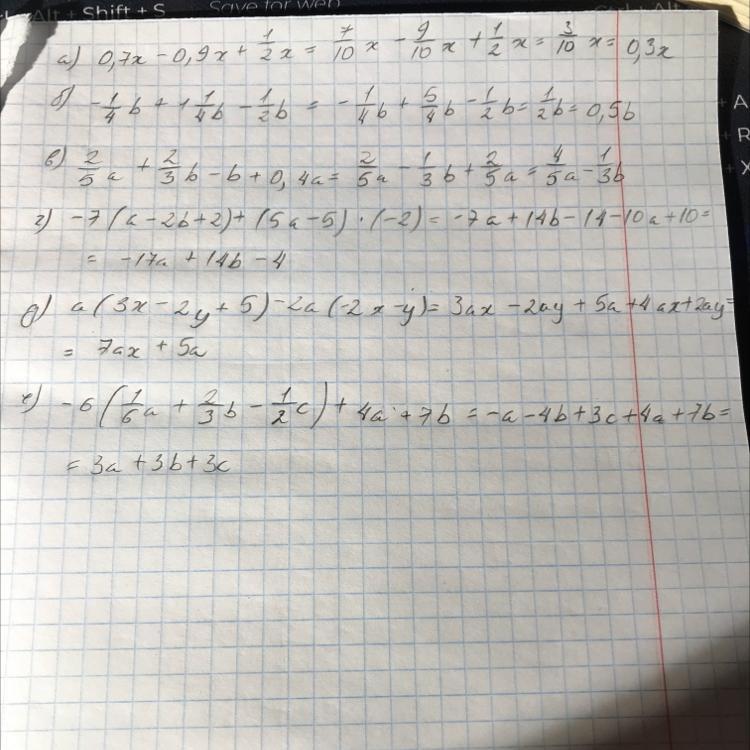 Alt + Shift + S Save for web Ctrl + Alt +
а) 0,7x - 0,9x + 1/2 x = 7/10 x - 9/10 x + 1/2 x = 3/10 x = 0,3x
+ A
б) -1/4 b + 1 1/4 b - 1/2 b = -1/4 b + 5/4 b - 1/2 b = 1/2 b = 0,5b
+ R
в) 2/5 a + 2/3 b - b + 0,4a = 2/5 a - 1/3 b + 2/5 a = 4/5 a - 1/3 b
+ X
г) -7(a - 2b + 2) + (5a - 5) · (-2) = -7a + 14b - 14 - 10a + 10 =
= -17a + 14b - 4
д) a(3x - 2y + 5) - 2a(-2x - y) = 3ax - 2ay + 5a + 4ax + 2ay =
= 7ax + 5a
е) -6(1/6 a + 2/3 b - 1/2 c) + 4a + 7b = -a - 4b + 3c + 4a + 7b =
= 3a + 3b + 3c